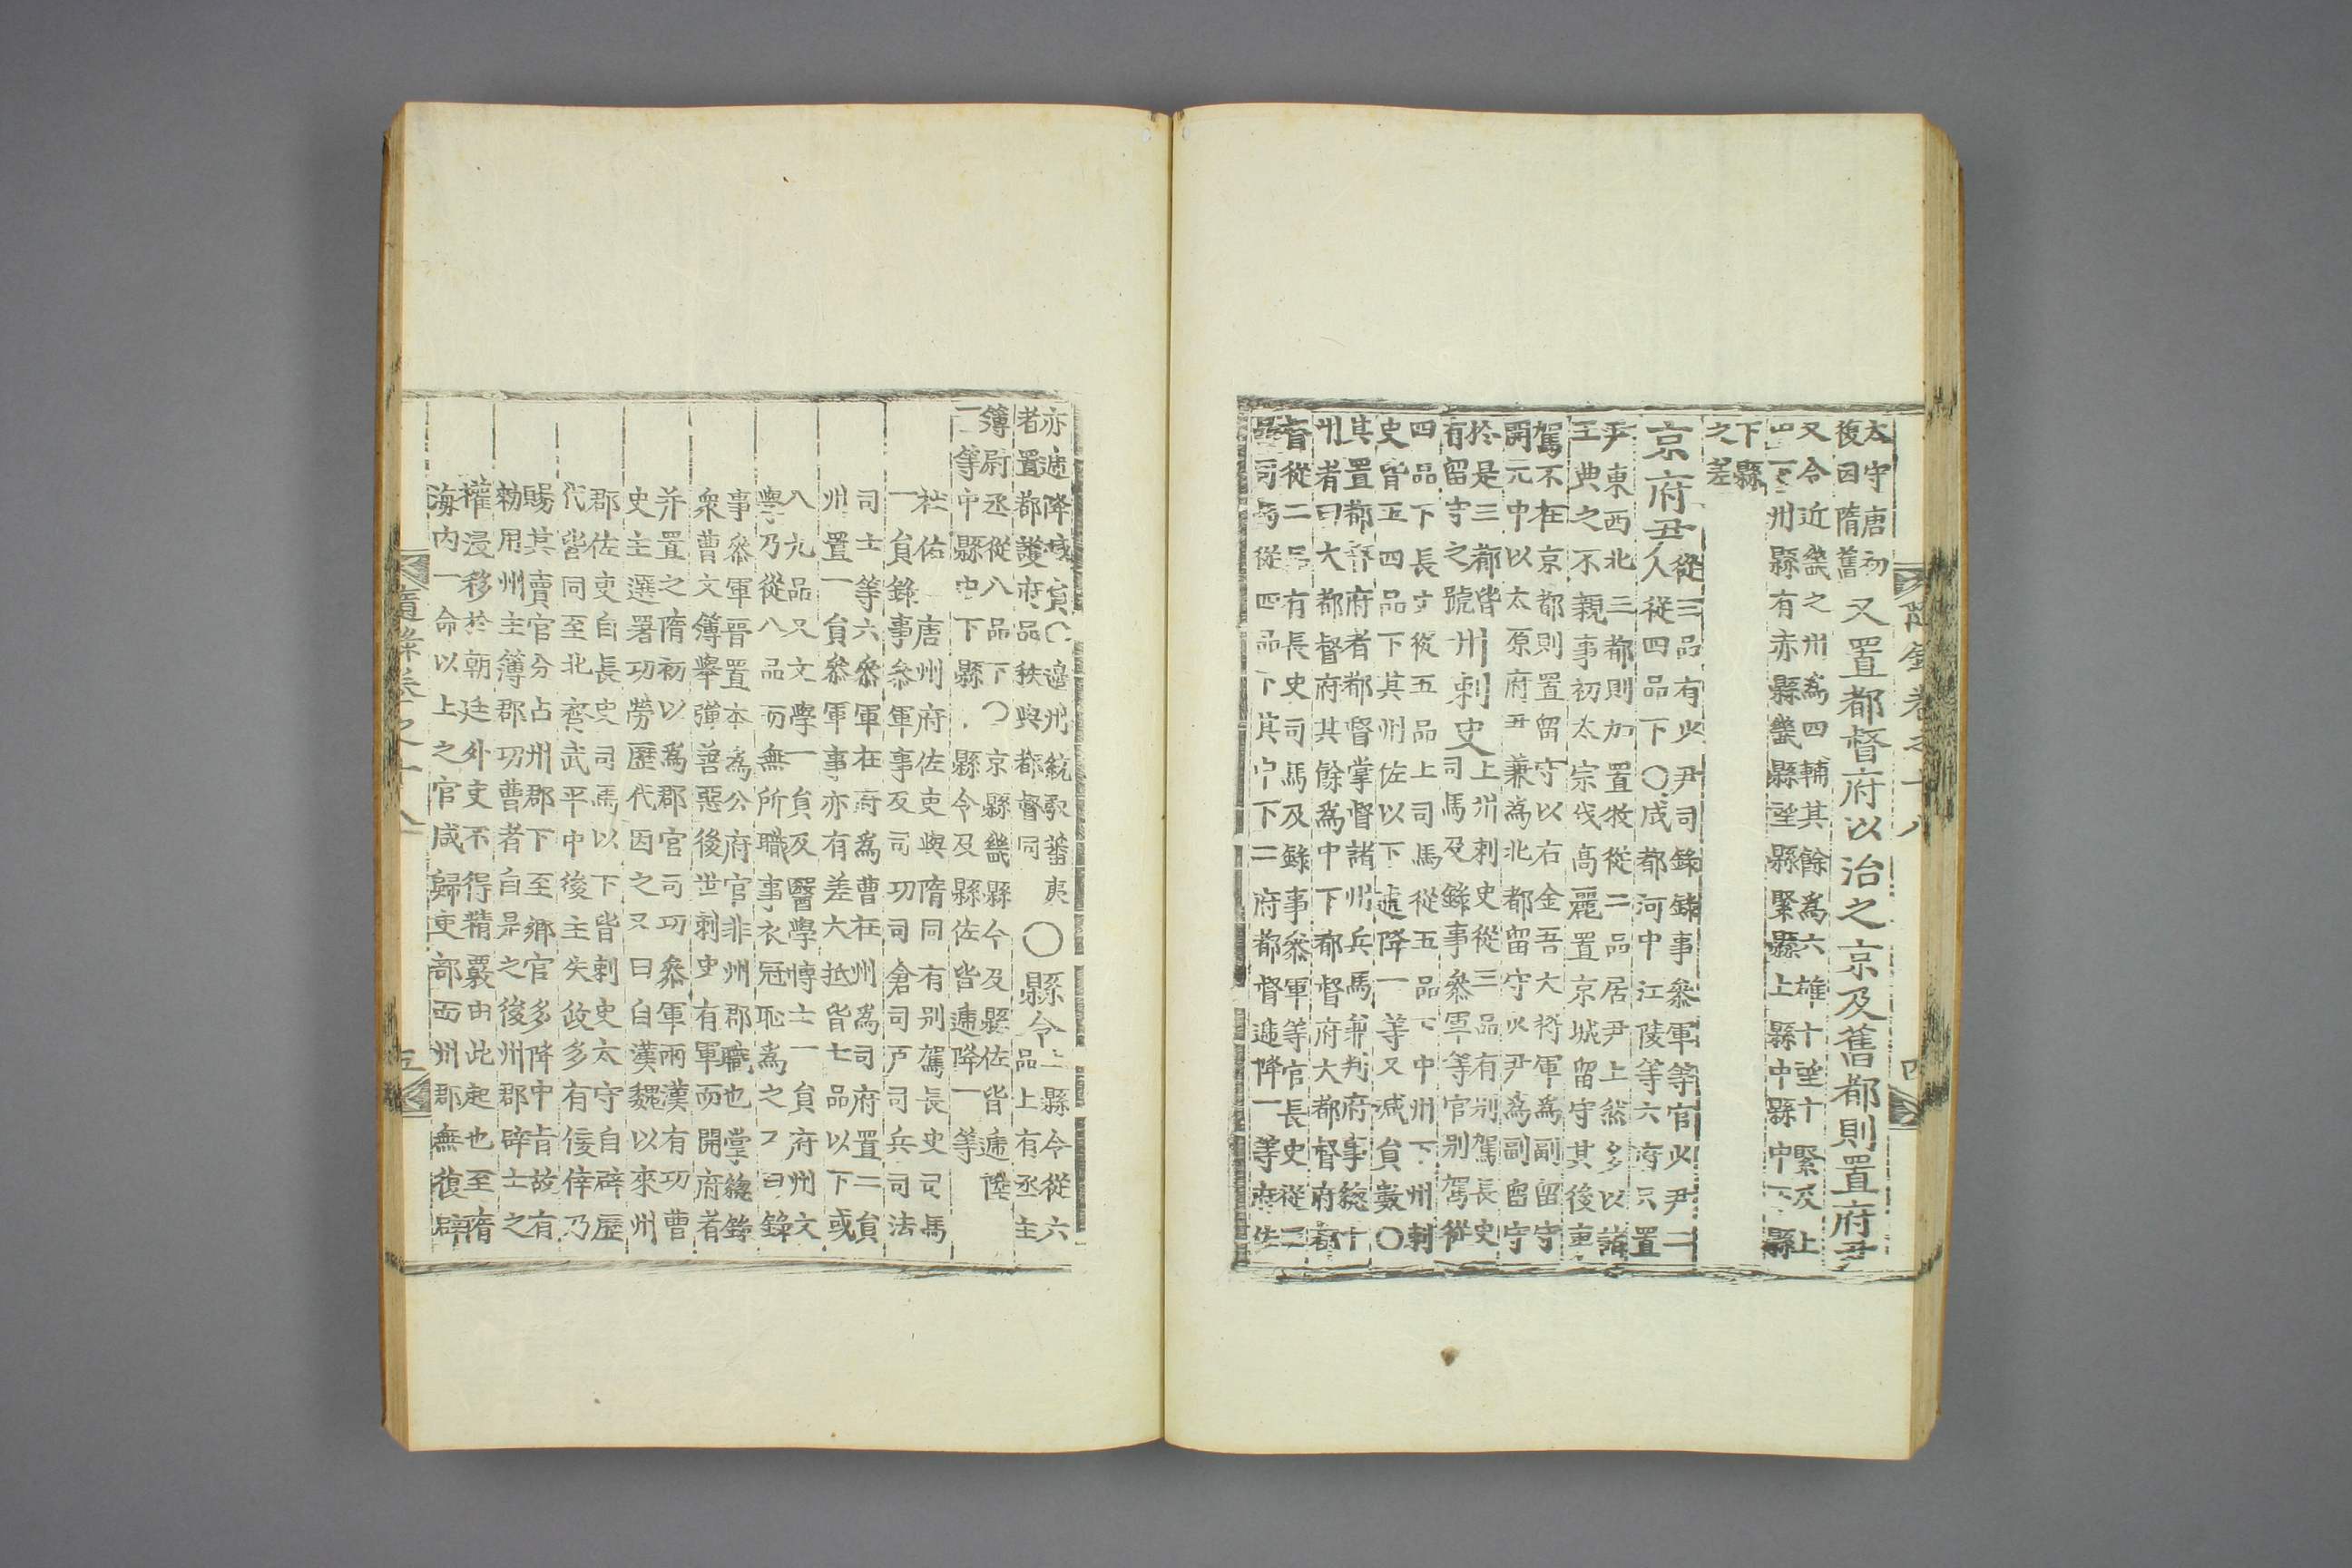 太守唐初
復因隋舊
又置都督府以治之京及舊都則置府尹
又令近畿之州為四輔其餘為六雄十望十緊及上
中下州縣有赤縣畿縣望縣緊縣上縣中縣中下縣
下縣
之差
京府尹
從三品有少尹司錄錄事參軍等官少尹二
人從四品下〇成都河中江陵等六府只置
尹東西北三都則加置牧從二品居尹上然多以諸
王典之不親事初太宗伐高麗置京城留守其後車
駕不在京都則置留守以右金吾大將軍為副留守
開元中以太原府尹兼為北都留守少尹為副留守
於是三都皆
有留守之號
州刺史
上州刺史從三品有別駕長史
司馬及錄事參軍等官別駕從
四品下長史從五品上司馬從五品下中州下州刺
史皆正四品下其州佐以下遞降一等又減員數〇
其置都督府者都督掌督諸州兵馬兼判府事緫十
州者曰大都督府其餘為中下都督府大都督府都
督從二品有長史司馬及錄事參軍等官長史從三
品司馬從四品下其中下二府都督遞降一等府佐
隨錄卷之十八
四
亦遞降減員〇邊州統馭蕃夷
者置都護府品秩與都督同
〇縣令
上縣令從六
品上有丞主
簿尉丞從八品下〇京縣畿縣令及縣佐皆遞陞
一等中縣中下縣下縣令及縣佐皆遞降一等
社佑
唐州府佐吏與隋同有別駕長史司馬
一員錄事參軍事及司功司倉司戶司兵司法
司士等六參軍在府為曹在州為司府置二員
州置一員參軍事亦有差大抵皆七品以下或
八九品又文學一員及醫學博士一員府州文
學乃從八品而無所職事衣冠恥為之又曰錄
事參軍晉置本為公府官非州郡職也掌緫錄
衆曹文簿舉彈善惡後世刺史有軍而開府者
并置之隋初以為郡官司功參軍兩漢有功曹
史主選署功勞歷代因之又曰自漢魏以來州
郡佐吏自長史司馬以下皆刺史太守自辟歷
代皆同至北齊武平中後主失政多有佞倖乃
賜其賣官分占州郡下至鄉官多降中旨故有
勑用州主簿郡功曹者自是之後州郡辟士之
權浸移於朝廷外吏不得精覈由此起也至隋
海內一命以上之官咸歸吏部而州郡無復辟
隨錄卷之十八
五